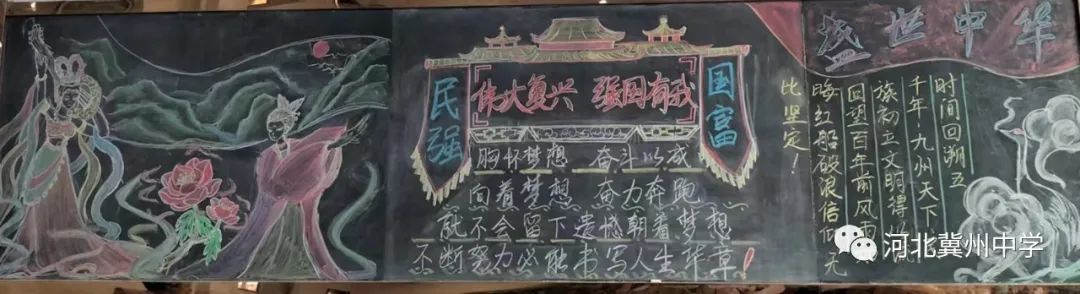 民强
国富
伟大复兴 强国有我
胸怀梦想 奋斗以成
向着梦想 奋力奔跑
就不会留下遗憾朝着梦想
不断努力必能书写人生华章!
盛世中华
时间回溯五
千年九州天下
族初立文明得
回望百年前风雨
晦红船破浪信仰无
比坚定!
河北冀州中学